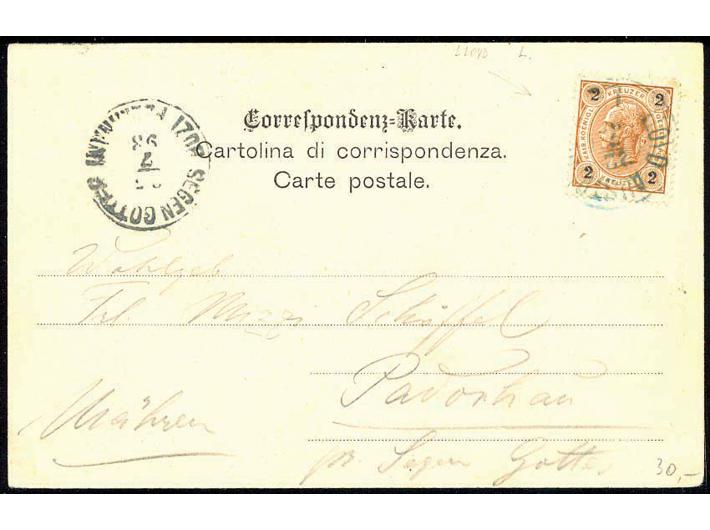 LLOYD L.
Correspondenz-Karte.
Cartolina di corrispondenza.
Carte postale.
SEGEN GOTTES
7
98
2 KREUZER 2
KAIS. KOENIGL.
2 KREUZER 2
LLOYD
Wohlgeb
Frl. Mizzi Schöffel
Padochau
Mähren
pr. Segen Gottes
30,-